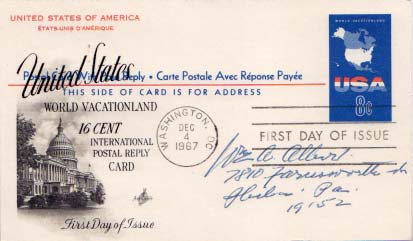 UNITED STATES OF AMERICA
ÉTATS-UNIS D'AMÉRIQUE
Postal Card With Paid Reply • Carte Postale Avec Réponse Payée
THIS SIDE OF CARD IS FOR ADDRESS
United States
WORLD VACATIONLAND
16 CENT
INTERNATIONAL
POSTAL REPLY
CARD
First Day of Issue
WASHINGTON, DC
DEC
4
1967
WORLD VACATIONLAND
USA
8c
FIRST DAY OF ISSUE
Wm A. Albert
7810
Phila. Pa.
19152